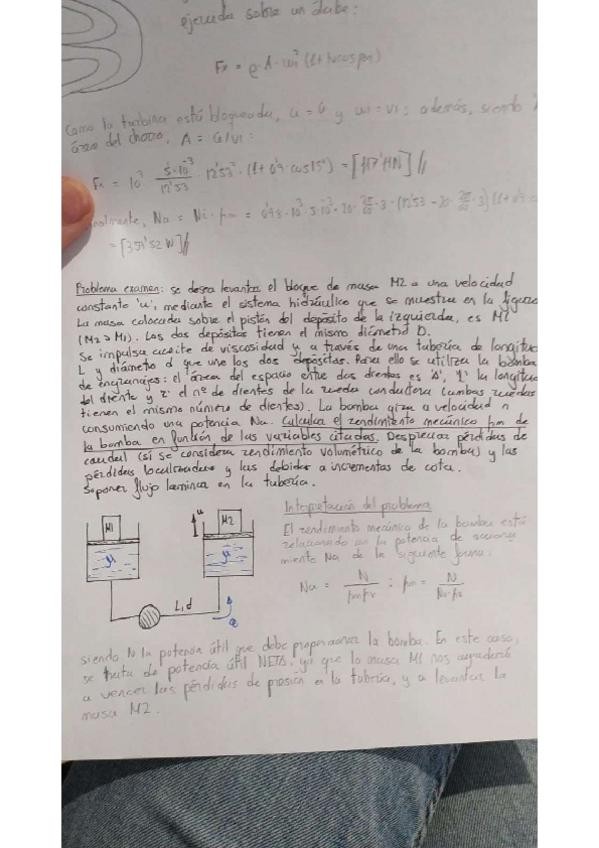 ejercida sobre un álabe:
Fx = ρ·A·ω1² (1+
Como la turbina está bloqueada, u = 0 y ω1 = v1; además, siendo
área del chorro, A = G/v1:
Fx = 10³ · 5·10⁻³ / 12'53 · 12'53² · (1+0'9·cos15°) =
Na = Ni · ηm =
= [351'52 W] //
Problema examen: se desea levantar el bloque de masa M2 a una velocidad
constante 'u', mediante el sistema hidráulico que se muestra en la figura
La masa colocada sobre el pistón del depósito de la izquierda, es M1
(M2 > M1). Los dos depósitos tienen el mismo diámetro D.
Se impulsa aceite de viscosidad μ a través de una tubería de longitud
L y diámetro d que une los dos depósitos. Para ello se utiliza la bomba
de engranajes: el área del espacio entre dos dientes es 'A', 'L' la longitud
del diente y z el nº de dientes de la rueda conductora (ambas ruedas
tienen el mismo número de dientes). La bomba gira a velocidad n
consumiendo una potencia Na. Calcular el rendimiento mecánico ηm de
la bomba en función de las variables citadas. Despreciar pérdidas de
caudal (sí se considera rendimiento volumétrico de la bomba) y las
pérdidas localizadas y las debidas a incrementos de cota.
Suponer flujo laminar en la tubería.
Interpretación del problema
El rendimiento mecánico de la bomba está
relacionado con la potencia de acciona
miento Na de la siguiente forma:
Na = N / ηm·ηv ; ηm = N / Na·ηv
M1
M2
u
μ
μ
L,d
Q
siendo N la potencia útil que debe proporcionar la bomba. En este caso,
se trata de potencia útil NETA, ya que la masa M1 nos ayudará
a vencer las pérdidas de presión en la tubería, y a levantar la
masa M2.